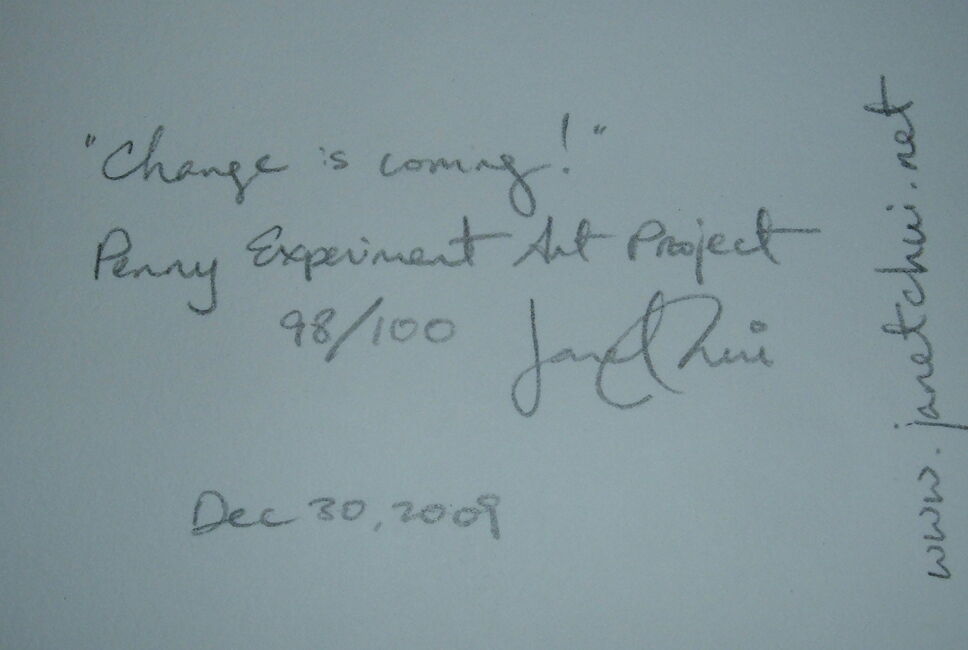 "Change is coming!"
Penny Experiment Art Project
98/100 Janet Chui
Dec 30, 2009
www.janetchui.net